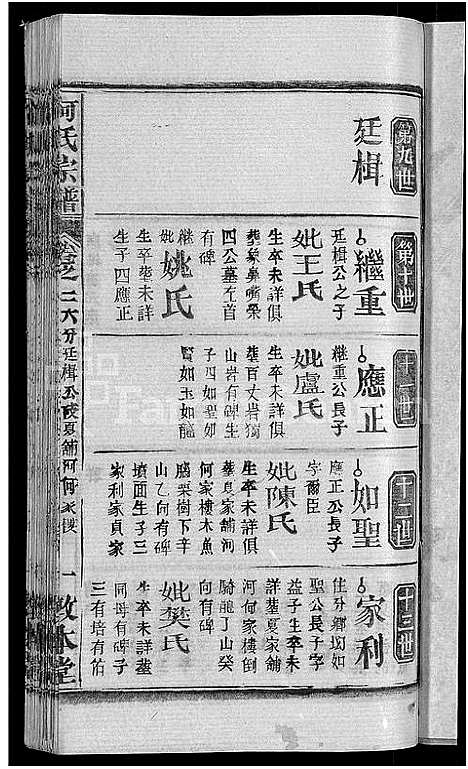 第九世
廷楫
第十世
繼重
廷楫公之子
妣王氏
生卒未詳俱
葬象鼻嘴榮
四公墓左首
有碑
繼妣姚氏
生卒葬未詳
生子四應正
十一世
應正
繼重公長子
妣盧氏
生卒未詳俱
葬百丈岩獨
山岩有碑生
子四如聖如
賢如玉如龍
十二世
如聖
應正公長子
字爾臣
妣陳氏
生卒未詳俱
葬夏家舖河
何家樓木魚
腦栗樹下辛
山乙向有碑
墳面生子三
家利家貞家
十三世
家利
住分鄉坳如
聖公長子字
益子生卒未
詳葬夏家舖
河何家樓倒
騎龍丁山癸
向有碑
妣樊氏
生卒未詳葬
同母有碑子
三有培有佑
何氏宗譜
卷之二六分廷楫公夏舖河何家樓
一敦本堂